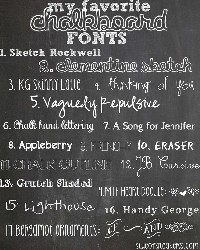 my favorite
chalkboard
FONTS
1. Sketch Rockwell
2. clementine sketch
3. KG Skinny Latte 4. thinking of you
5. Vaguely Repulsive
6. Chalk hand lettering 7. A Song for Jennifer
8. Appleberry 10. ERASER
11. CHALK OUTLINE 12. JB Cursive
13. Grutch Shaded
15. Lighthouse 16. Handy George
17. Bergamot Ornaments